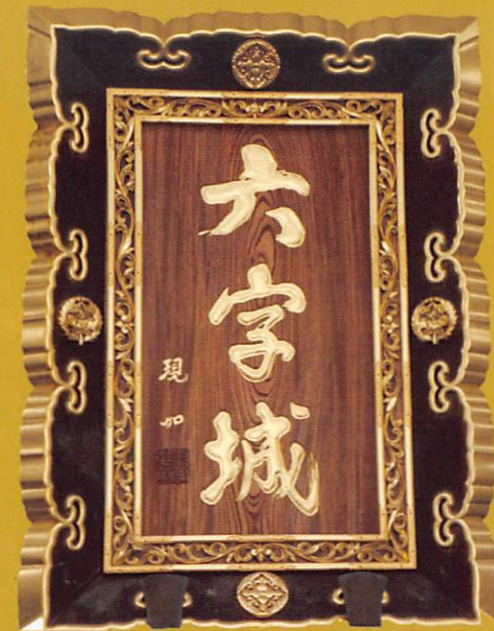 六字城
現如